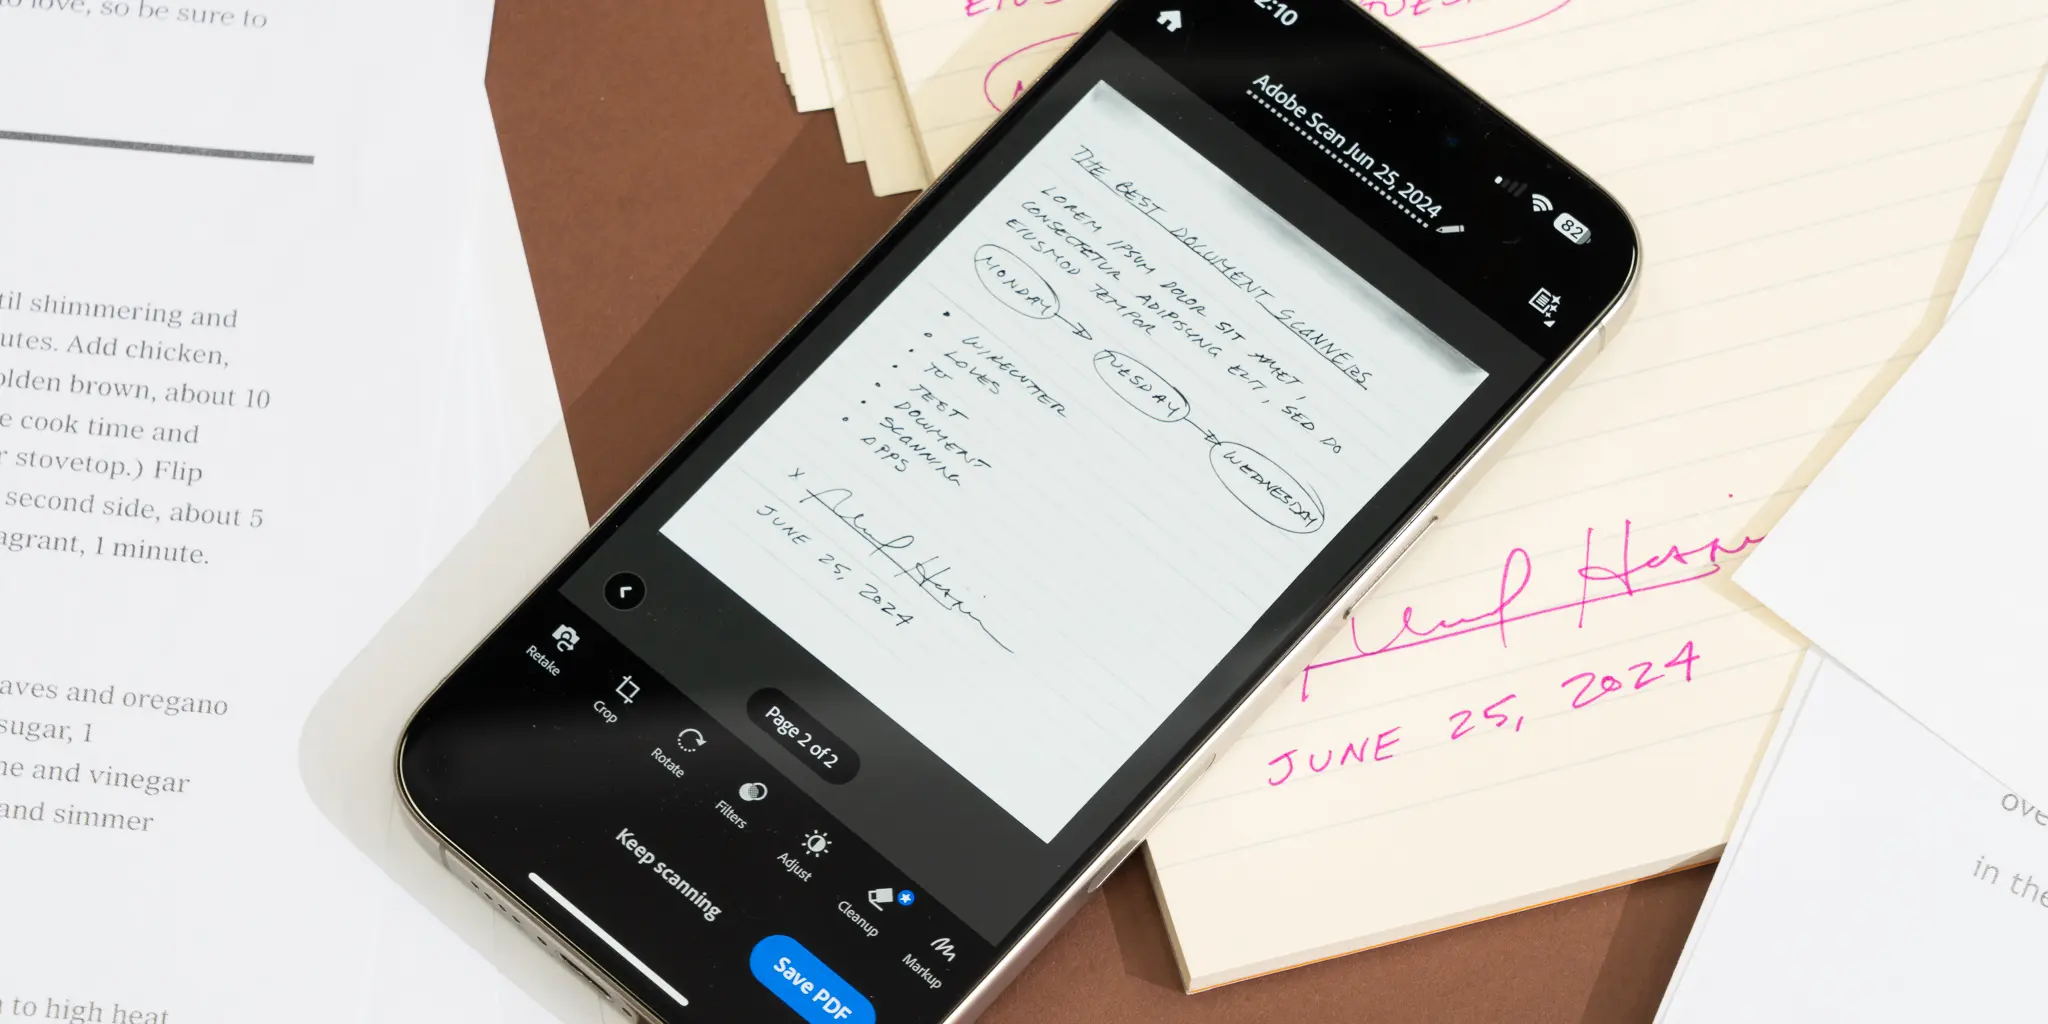 to love, so be sure to
til shimmering and
utes. Add chicken,
olden brown, about 10
e cook time and
r stovetop.) Flip
second side, about 5
agrant, 1 minute.
aves and oregano
sugar, 1
ne and vinegar
and simmer
to high heat
2:10
82
Adobe Scan Jun 25, 2024
THE BEST DOCUMENT SCANNERS
LOREM IPSUM DOLOR SIT AMET,
CONSECTETUR ADIPISCING ELIT, SED DO
EIUSMOD TEMPOR
MONDAY → TUESDAY → WEDNESDAY
• WIRECUTTER
• LOVES
• TO
• TEST
• DOCUMENT
• SCANNING
• APPS
X
JUNE 25, 2024
Page 2 of 2
Retake
Crop
Rotate
Filters
Adjust
Cleanup
Markup
Keep scanning
Save PDF
JUNE 25, 2024
ove
in the